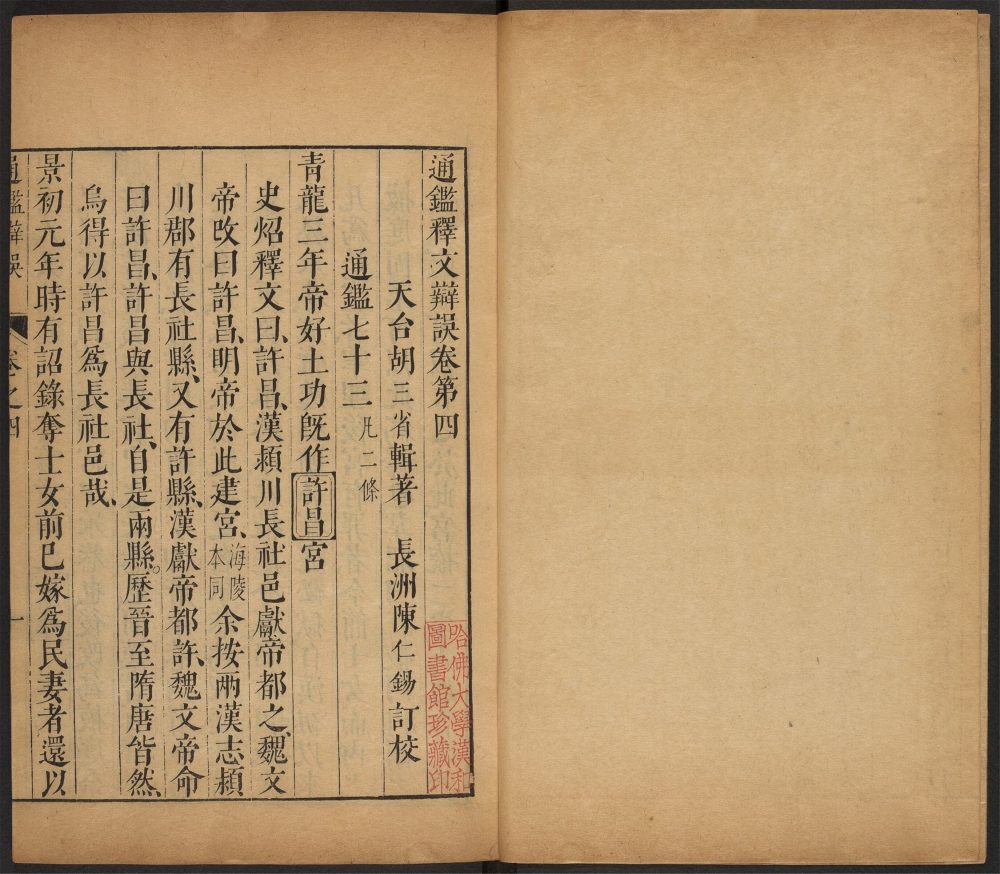 通鑑釋文辯誤卷第四
天台胡三省輯著　長洲陳仁錫訂校
通鑑七十三凡二條
青龍三年帝好土功旣作許昌宮
史炤釋文曰、許昌、漢潁川長社邑獻帝都之、魏文
帝改曰許昌、明帝於此建宮、海陵本同余按兩漢志潁
川郡有長社縣、又有許縣、漢獻帝都許、魏文帝命
曰許昌、許昌與長社、自是兩縣。歷晉至隋唐皆然、
烏得以許昌爲長社邑哉、
景初元年時有詔錄奪士女前已嫁爲民妻者還以
通鑑辯誤　卷之四　一
哈佛大學漢和
圖書館珍藏印